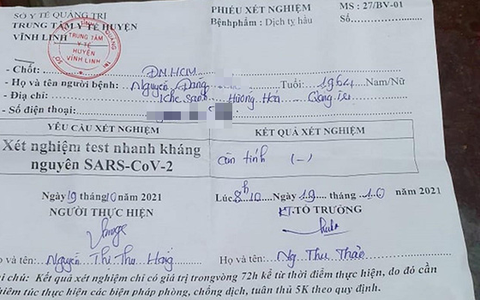 SỞ Y TẾ QUẢNG TRỊ
TRUNG TÂM Y TẾ HUYỆN
VĨNH LINH
PHIẾU XÉT NGHIỆM
Bệnh phẩm : Dịch tỵ hầu
MS : 27/BV-01
TRUNG TÂM
Y TẾ
HUYỆN
VĨNH LINH
- Chốt: ĐN.HCM
- Họ và tên người bệnh: Nguyễn Đăng Tuổi: 1964 Nam/Nữ
- Địa chỉ: Khe Sanh Hướng Hoá
- Số điện thoại
YÊU CẦU XÉT NGHIỆM
KẾT QUẢ XÉT NGHIỆM
Xét nghiệm test nhanh kháng
nguyên SARS-CoV-2
âm tính (-)
Ngày 19 tháng 10 2021
NGƯỜI THỰC HIỆN
Lúc 8h10 19 10 năm 2021
KT.TỔ TRƯỞNG
Họ và tên: Nguyễn Thị Thu Hồng
Họ và tên: Ng. Thu Thảo
chú: Kết quả xét nghiệm chỉ có giá trị trong vòng 72h kể từ thời điểm thực hiện, do đó cần
hiêm túc thực hiện các biện pháp phòng, chống dịch, tuân thủ 5K theo quy định.